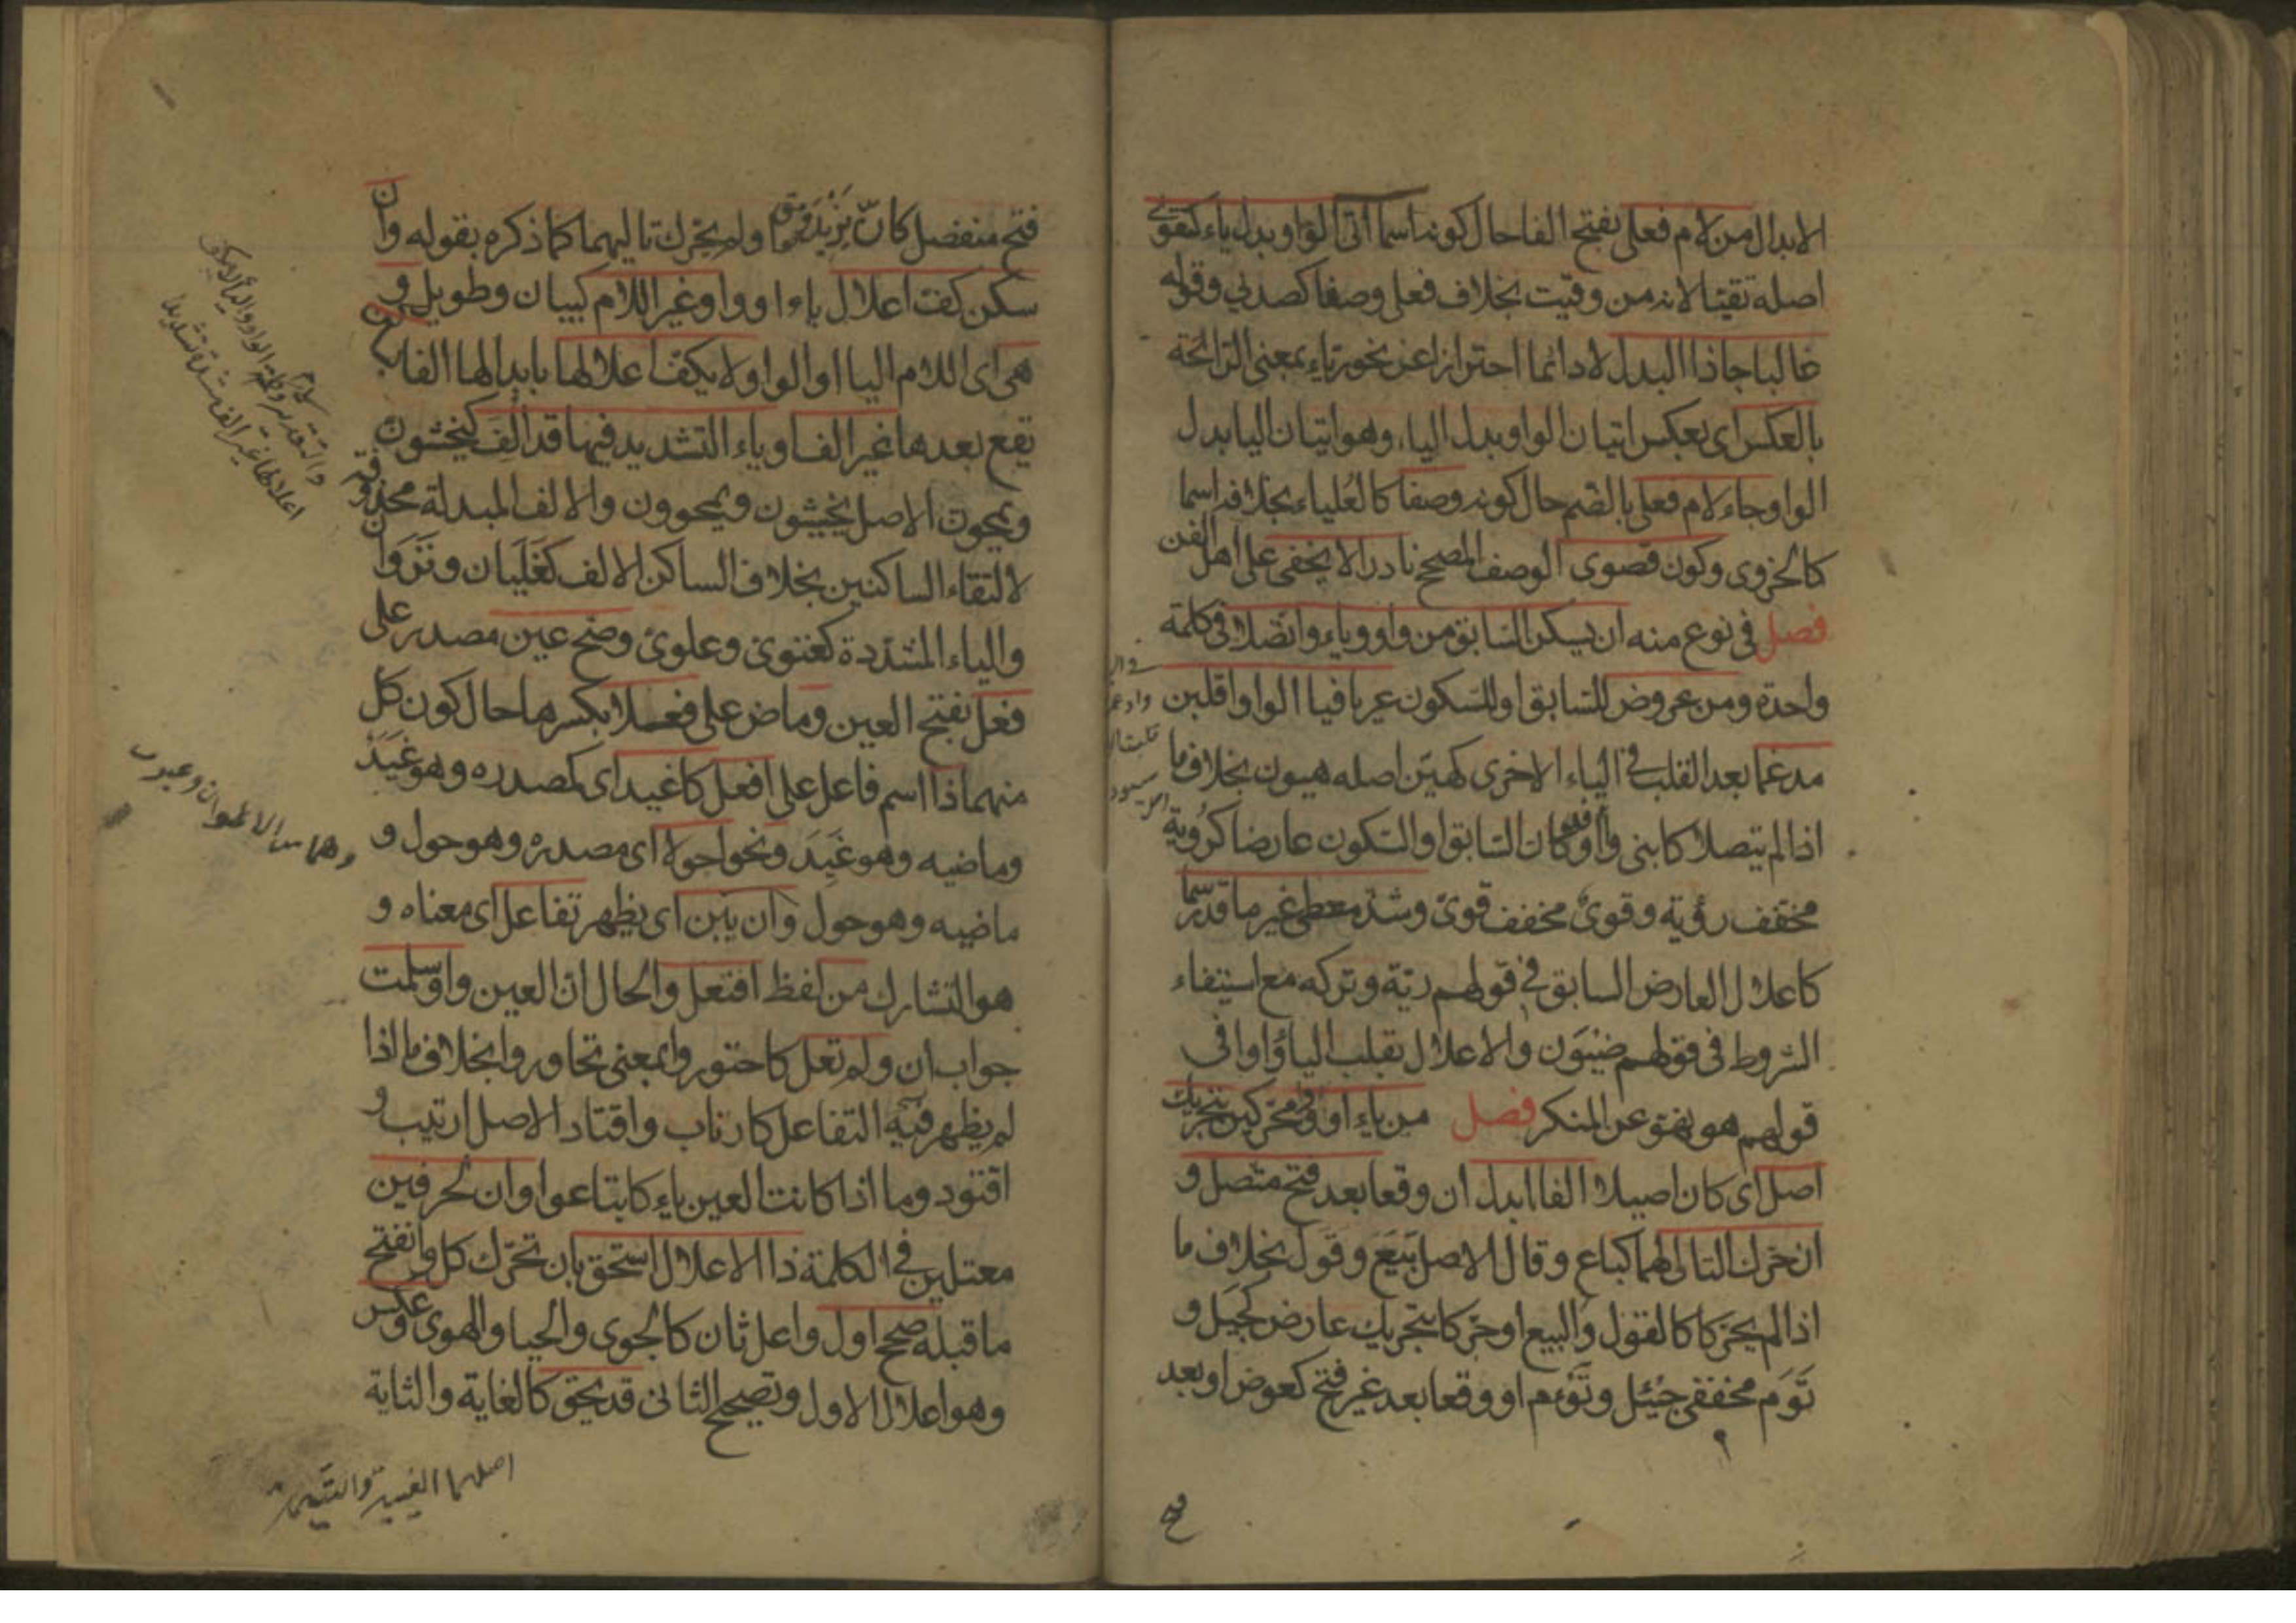 الابدال من لام فعلى بفتح الفا حال كونه اسما اتى الواو بدل ياء كتقوى
اصله تقيا لانه من وقيت بخلاف فعلى وصفا كصديى وقوله
غالبا جا ذا البدل لا دائما احترازا عن نحو رياء بمعنى الرائحة
بالعكس اى بعكس اتيان الواو بدل الياء وهو اتيان اليا بدل
الواو جاء لام فعلى بالضم حال كونه وصفا كالعلياء بخلافه اسما
كالحزوى وكون قصوى الوصف المصحح نادرا لا يخفى على اهل الفن
فصل فى نوع منه ان يسكن السابق من واو وياء واتصلا فى كلمة
واحدة ومن عروض للسابق او للسكون عريا فيا الواو اقلبن
مدغما بعد القلب فى الياء الاخرى كهيّن اصله هيون بخلاف ما
اذا لم يتصلا كابنى وافد او كان السابق او السكون عارضا كرُوية
مخفف رؤية وقوىْ مخفف قوى وشذ معطى غير ما قد رسما
كاعلال العارض السابق فى قولهم ريّة وتركه مع استيفاء
الشروط فى قولهم ضيْوَن والاعلال بقلب الياء واوا فى
قولهم هو نهو عن المنكر فصل من ياء او واو محركين بتحريك
اصل اى كان اصيلا الفا ابدل ان وقعا بعد فتح متصل و
ان حرك التالى لهما كباع وقال الاصل بَيَع وقَوَل بخلاف ما
اذا لم يحركا كالقول والبيع او حركا بتحريك عارض كجَيَل و
تَوَم مخففى جيْئل وتَوْءم او وقعا بعد غير فتح كعوض او بعد
فتح
فتح منفصل كانّ يزيد ومق ولم يحرك تاليهما كما ذكره بقوله وان
سكن كفّ اعلال ياء او واو غير اللام كبيان وطويل و
هى اى اللام اليا او الواو لا يكف اعلالها بابدالها الفا بساكن
يقع بعدها غير الف او ياء التشديد فيها قد الف كيخشون
ويمحون الاصل يخشيون ويمحوون والالف المبدلة محذوفة
لالتقاء الساكنين بخلاف الساكن الالف كغَلَيان ونَزَوان
والياء المشددة كغنوىّ وعلوىّ وصح عين مصدر على
فعل بفتح العين وماض على فعلا بكسرها حال كون كل
منهما ذا اسم فاعل على افعل كاغيد اى كمصدره وهو غَيَد
وماضيه وهو غَيِدَ ونحو احولا اى مصدره وهو حول و
ماضيه وهو حول وان يبن اى يظهر تفاعل اى معناه و
هو التشارك من لفظ افتعل والحال ان العين واو سلمت
جواب ان ولم تعل كاحتوروا بمعنى تحاوروا بخلاف ما اذا
لم يظهر فيه التفاعل كارتاب واقتاد الاصل ارتيب و
اقتود وما اذا كانت العين ياء كابتاعوا وان لحرفين
معتلين فى الكلمة ذا الاعلال استحق بان تحرك كل وانفتح
ما قبله صحح اول واعل ثان كالجوى والحيا والهوى وعكس
وهو اعلال الاول وتصحيح الثانى قد يحق كالغاية والثاية